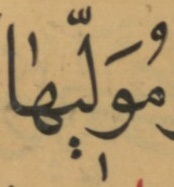 مُوَلِّيهَا